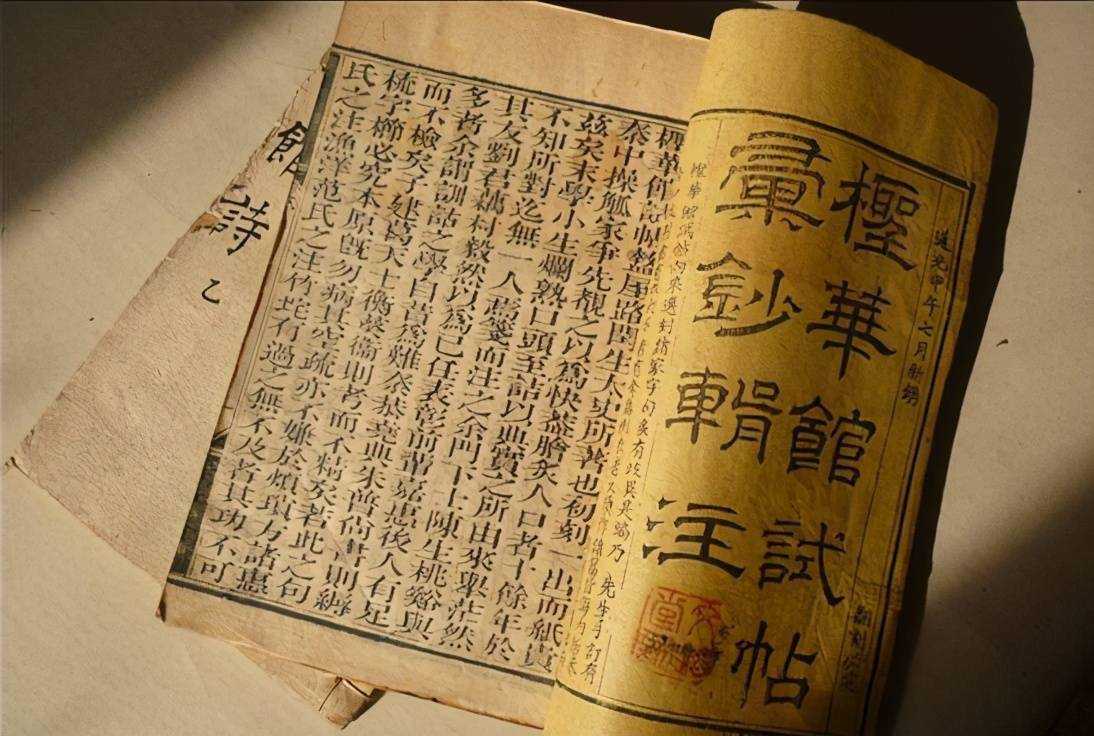 道光甲午七月新鐫
檉華館試帖
彙鈔輯注
檉華館試帖盩厔路閏生太史所著也初刻一出而紙貴
秦中操觚家爭先覩之以為快蓋膾炙人口者十餘年於
茲矣末學小生爛熟口頭至詰以典實之所由來舉茫然
不知所對迄無一人焉箋而注之余門下士陳生桃谿與
其友劉君藕村毅然以為己任表彰前喆嘉惠後人有足
多者余謂訓詁之學自昔為難秦恭堯典朱普尙書則縟
而不檢矣子建葛天士衡蔡衞則考而不精矣若此之句
梳字櫛必究本原旣勿病其空疏亦不嫌於煩瑣方諸惠
氏之注漁洋范氏之注竹垞有過之無不及者其功不可
館詩
乙